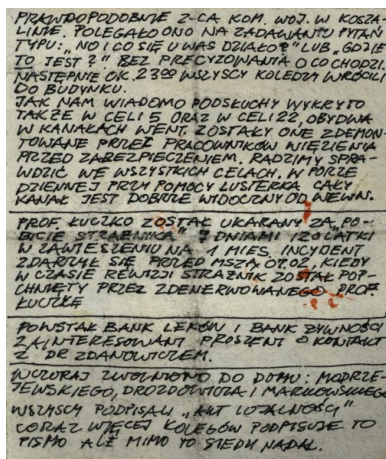 PRAWDOPODOBNIE Z-CA KOM. WOJ. W KOSZA-
LINIE. POLEGAŁO ONO NA ZADAWANIU PYTAŃ
TYPU: „NO I CO SIĘ U WAS DZIAŁO?" LUB „GDZIE
TO JEST?" BEZ PRECYZOWANIA O CO CHODZI.
NASTĘPNIE OK. 23°° WSZYSCY KOLEDZY WRÓCILI
DO BUDYNKU.
JAK NAM WIADOMO PODSŁUCHY WYKRYTO
TAKŻE W CELI 5 ORAZ W CELI 22, OBYDWA
W KANAŁACH WENT. ZOSTAŁY ONE ZDEMON-
TOWANE PRZEZ PRACOWNIKÓW WIĘZIENIA
PRZED ZABEZPIECZENIEM. RADZIMY SPRA-
WDZIĆ WE WSZYSTKICH CELACH. W PORZE
DZIENNEJ PRZY POMOCY LUSTERKA CAŁY
KANAŁ JEST DOBRZE WIDOCZNY OD WEWN.
PROF ŁUCZKO ZOSTAŁ UKARANY ZA „PO-
BICIE STRAŻNIKA" 7 DNIAMI IZOLATKI
W ZAWIESZENIU NA 1 MIES. INCYDENT
ZDARZYŁ SIĘ PRZED MSZĄ OTÓŻ, KIEDY
W CZASIE REWIZJI STRAŻNIK ZOSTAŁ POP-
CHNIĘTY PRZEZ ZDENERWOWANEGO PROF.
ŁUCZKĘ
POWSTAŁ BANK LEKÓW I BANK ŻYWNOŚCI
ZAINTERESOWANI PROSZENI O KONTAKT
Z DR ZDANOWICZEM.
WCZORAJ ZWOLNIONO DO DOMU: MODRZE-
JEWSKIEGO, DROZDOWICZA I MARKOWSKIEGO
WSZYSCY PODPISALI „AKT LOJALNOŚCI"
CORAZ WIĘCEJ KOLEGÓW PODPISUJE TO
PISMO ALE MIMO TO SIEDZI NADAL.